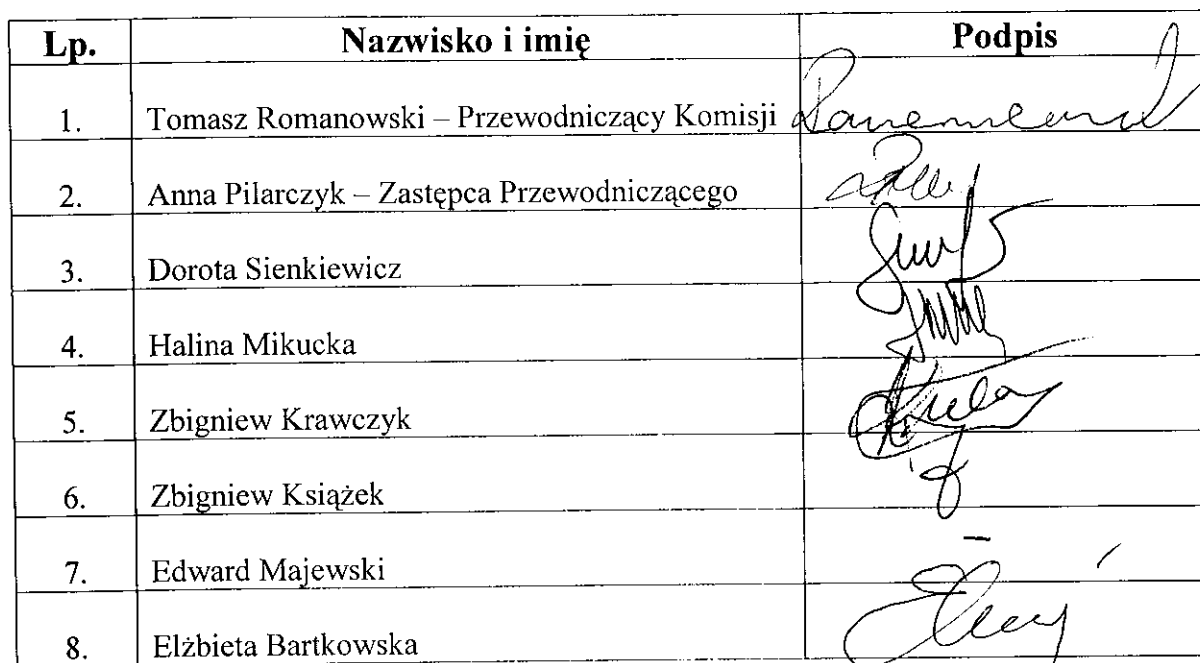 Lp. Nazwisko i imię Podpis
1. Tomasz Romanowski – Przewodniczący Komisji
2. Anna Pilarczyk – Zastępca Przewodniczącego
3. Dorota Sienkiewicz
4. Halina Mikucka
5. Zbigniew Krawczyk
6. Zbigniew Książek
7. Edward Majewski –
8. Elżbieta Bartkowska